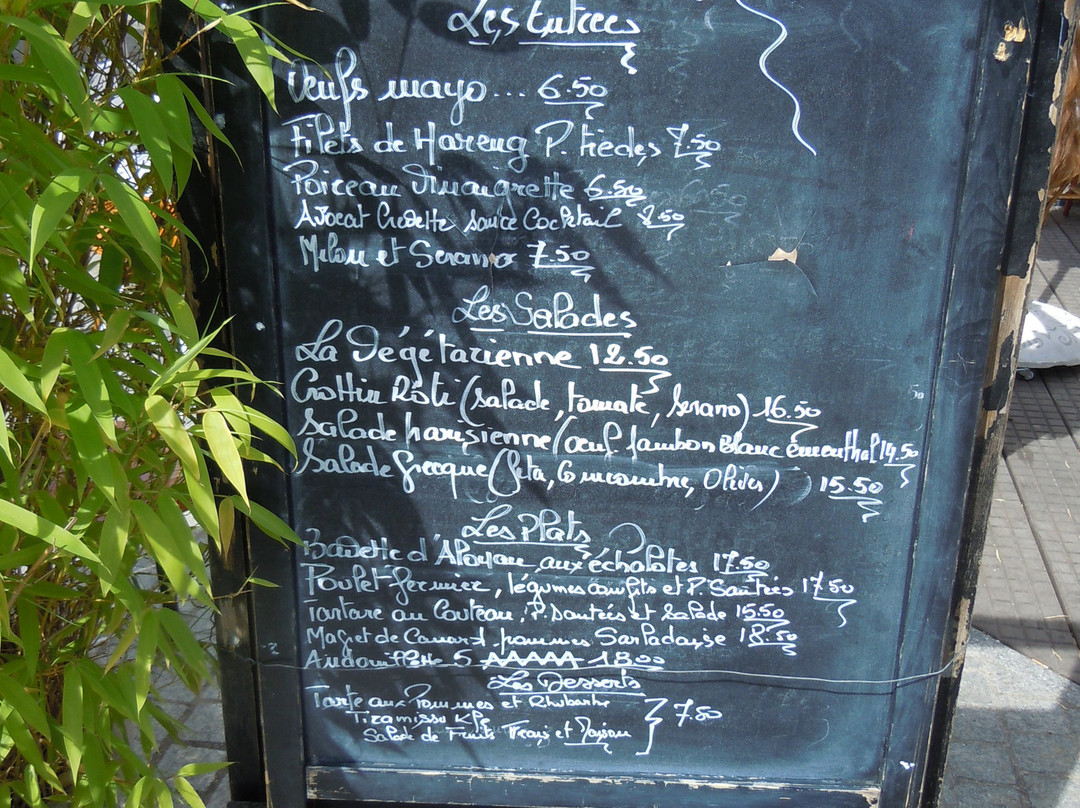 Les Entrées
Oeufs mayo... 6.50
Filets de Hareng P. tièdes 7.50
Poireau Vinaigrette 6.50
Avocat Crevette sauce Cocktail 8.50
Melon et Serano 7.50
Les Salades
La Végétarienne 12.50
Crottin Rôti (salade, tomate, Serano) 16.50
Salade parisienne (oeuf jambon Blanc émenthal 14.50
Salade Grecque (feta, Concombre, Olives) 15.50
Les Plats
Bavette d'Aloyau aux échalotes 17.50
Poulet fermier, légumes confits et P. Sautées 17.50
Tartare au Couteau, P. sautées et salade 15.50
Magret de Canard, pommes Sarladaise 18.50
Andouillette 5 AAAAA 18.00
Les Desserts
Tarte aux Pommes et Rhubarbe
Tiramissu 7.50
Salade de Fruits Frais et Maison